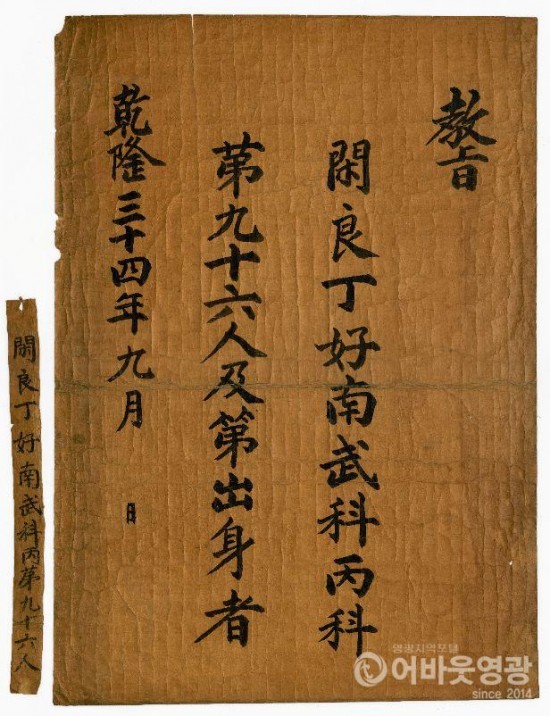 敎旨
閑良丁好南武科丙科
第九十六人及第出身者
乾隆三十四年九月 日
閑良丁好南武科丙第九十六人
영광지역포털
어바웃영광
since 2014